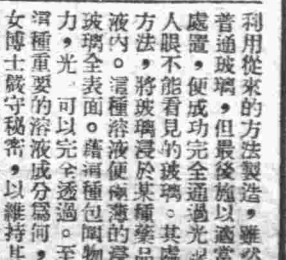 利用從來的方法製造，雖然
普通玻璃，但最後施以適當
處置，便成功完全通過光
人眼不能看見的玻璃。其處
方法，將玻璃浸於某種藥品
液內。這種溶液便極薄的
玻璃全表面。藉這種包圍物
力，光 可以完全透過。至
這種重要的溶液成分爲何，
女博士嚴守秘密，以維持其